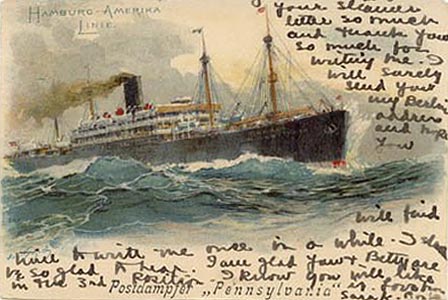 HAMBURG-AMERIKA
LINIE.
your steamer
letter so much
and thank you
so much for
writing me. I
will surely
send you
my Berlin
address
and hope
you
will find
time to write me once in a while. I shall
be so glad to hear. I am glad you & Betty are
in the 3rd position. I know you will like
Postdampfer „Pennsylvania"
it.